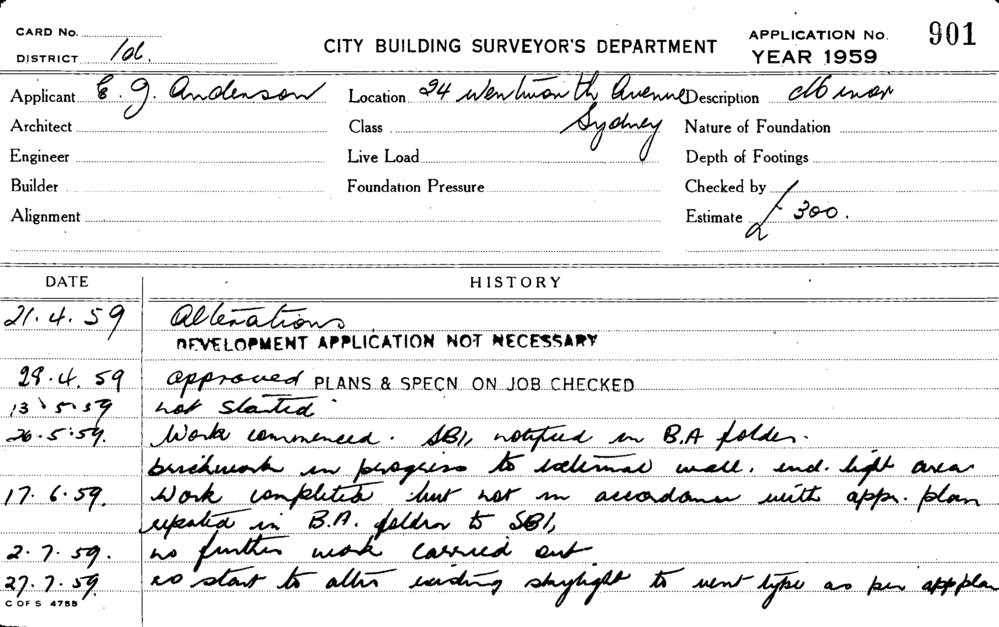 CARD No.
DISTRICT
CITY BUILDING SURVEYOR'S DEPARTMENT
APPLICATION No. 901
YEAR 1959
Applicant E. G. Anderson
Location 24 Wentworth Avenue
Sydney
Description
Architect
Class
Nature of Foundation
Engineer
Live Load
Depth of Footings
Builder
Foundation Pressure
Checked by
Alignment
Estimate £ 300.
DATE
HISTORY
21.4.59 Alterations
DEVELOPMENT APPLICATION NOT NECESSARY
28.4.59 approved PLANS & SPECN ON JOB CHECKED
13.5.59 not started
26.5.59. Work commenced. SBI, notified in B.A folder.
brickwork in progress to external wall. light area
17.6.59. Work completed but not in accordance with appr. plan
reported in B.A. folder to SBI,
2.7.59. no further work carried out
27.7.59. no start to alter existing skylight to vent type as per app plan
C OF S 4755